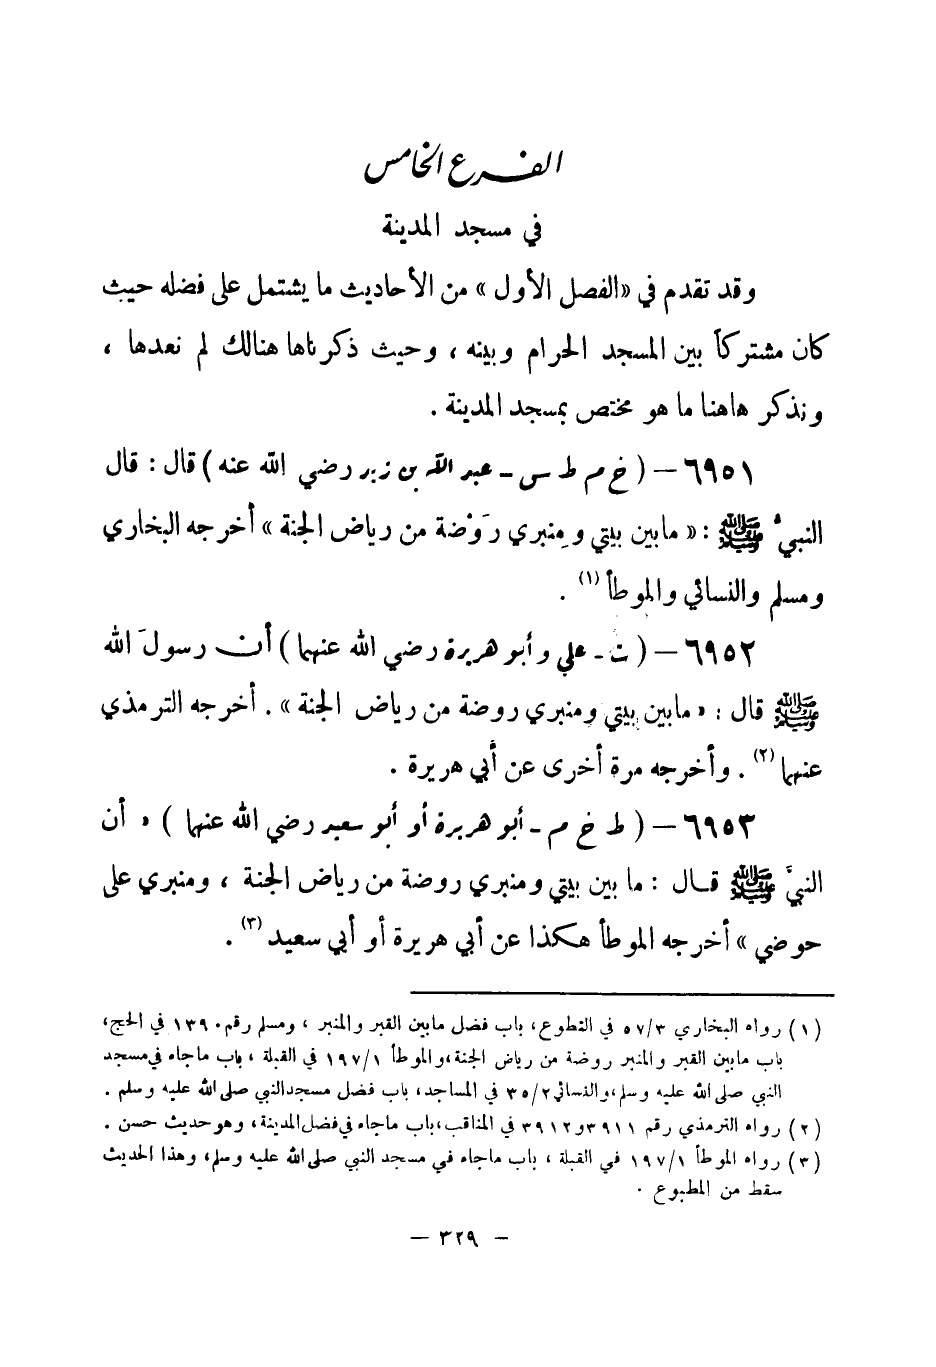 الفرع الخامس
في مسجد المدينة
وقد تقدم في «الفصل الأول» من الأحاديث ما يشتمل على فضله حيث
كان مشتركاً بين المسجد الحرام وبينه ، وحيث ذكرناها هنالك لم نعدها ،
ونذكر هاهنا ما هو مختص بمسجد المدينة .
٦٩٥١ – ( خ م ط س - عبد الله بن زيد رضي الله عنه ) قال : قال
النبيُّ ﷺ : « ما بين بيتي ومِنبري رَوْضة من رياض الجنة » أخرجه البخاري
ومسلم والنسائي والموطأ (١) .
٦٩٥٢ – ( ت - علي وأبو هريرة رضي الله عنهما ) أن رسولَ الله
ﷺ قال : « ما بين بيتي ومنبري روضة من رياض الجنة » . أخرجه الترمذي
عنهما (٢) . وأخرجه مرة أخرى عن أبي هريرة .
٦٩٥٣ – ( ط خ م - أبو هريرة أو أبو سعيد رضي الله عنهما ) « أن
النبيَّ ﷺ قال : ما بين بيتي ومنبري روضة من رياض الجنة ، ومنبري على
حوضي » أخرجه الموطأ هكذا عن أبي هريرة أو أبي سعيد (٣) .
(١) رواه البخاري ٥٧/٣ في التطوع، باب فضل ما بين القبر والمنبر ، ومسلم رقم ١٣٩٠ في الحج،
باب ما بين القبر والمنبر روضة من رياض الجنة،والموطأ ١٩٧/١ في القبلة ، باب ما جاء في مسجد
النبي صلى الله عليه وسلم،والنسائي ٣٥/٢ في المساجد، باب فضل مسجد النبي صلى الله عليه وسلم .
(٢) رواه الترمذي رقم ٣٩١١ و ٣٩١٢ في المناقب،باب ما جاء في فضل المدينة، وهو حديث حسن .
(٣) رواه الموطأ ١٩٧/١ في القبلة ، باب ما جاء في مسجد النبي صلى الله عليه وسلم، وهذا الحديث
سقط من المطبوع .
– ٣٢٩ –